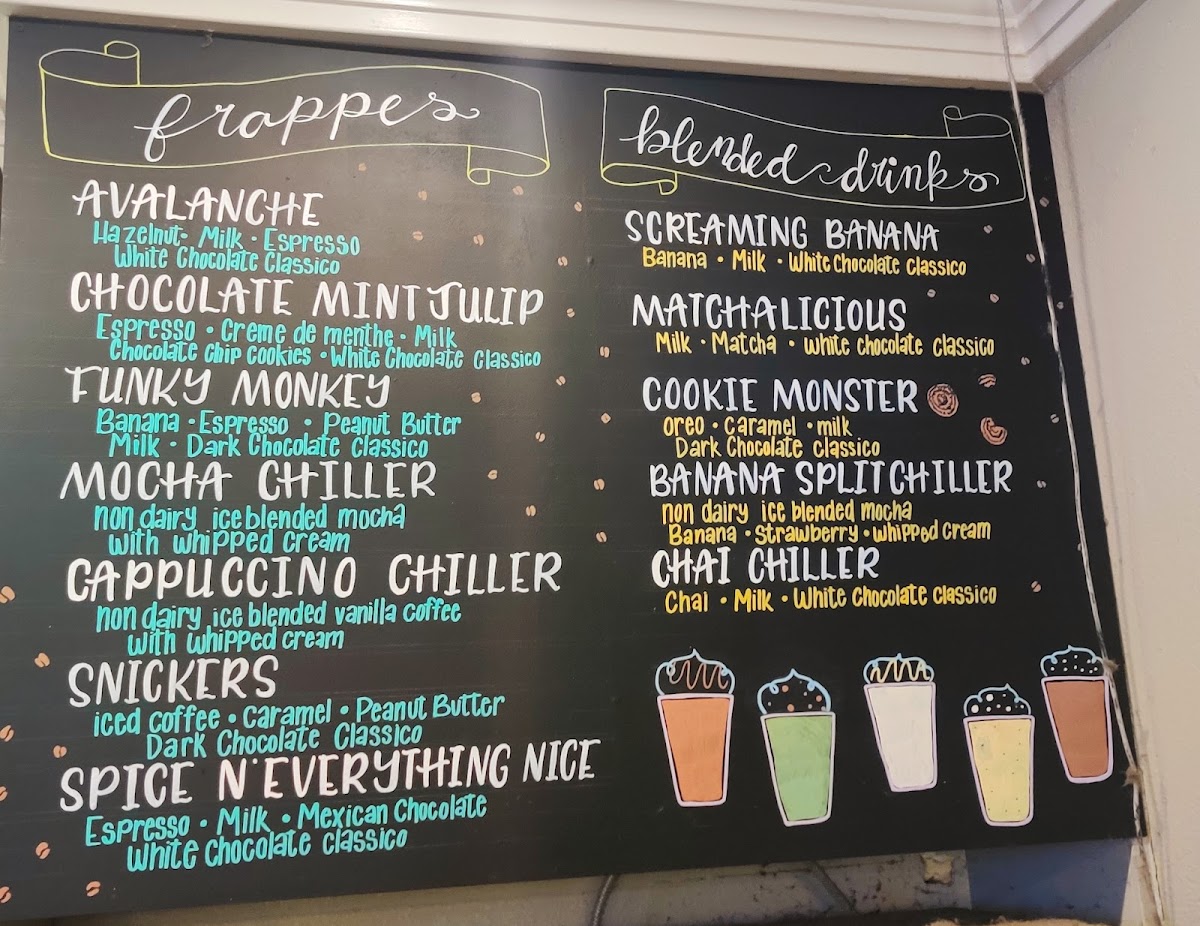 frappes
AVALANCHE
Hazelnut · Milk · Espresso
White Chocolate Classico
CHOCOLATE MINT JULIP
Espresso · Creme de menthe · Milk
Chocolate chip cookies · White Chocolate Classico
FUNKY MONKEY
Banana · Espresso · Peanut Butter
Milk · Dark Chocolate Classico
MOCHA CHILLER
non dairy ice blended mocha
with whipped cream
CAPPUCCINO CHILLER
non dairy ice blended vanilla coffee
with whipped cream
SNICKERS
iced coffee · Caramel · Peanut Butter
Dark Chocolate Classico
SPICE N' EVERYTHING NICE
Espresso · Milk · Mexican Chocolate
White chocolate classico
blended drinks
SCREAMING BANANA
Banana · Milk · White Chocolate Classico
MATCHALICIOUS
Milk · Matcha · white chocolate classico
COOKIE MONSTER
oreo · caramel · milk
Dark Chocolate classico
BANANA SPLIT CHILLER
non dairy ice blended mocha
Banana · Strawberry · whipped cream
CHAI CHILLER
Chai · Milk · White Chocolate classico